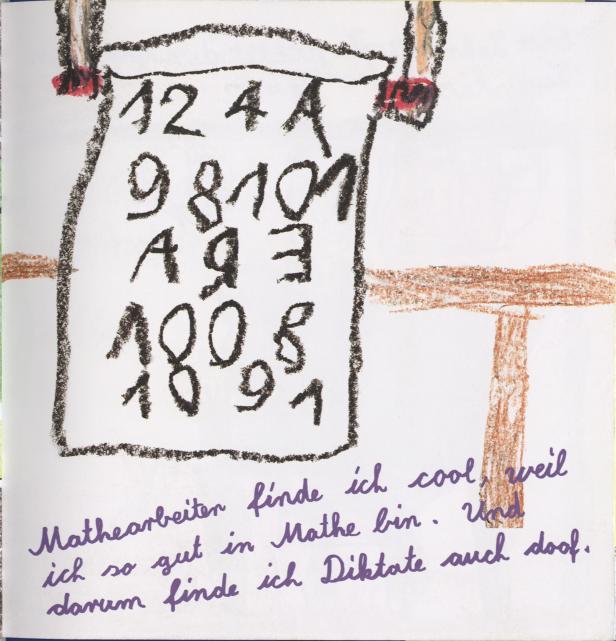 12 4 A
98101
A Я E
1008
18 91
Mathearbeiten finde ich cool, weil
ich so gut in Mathe bin. Und
darum finde ich Diktate auch doof.